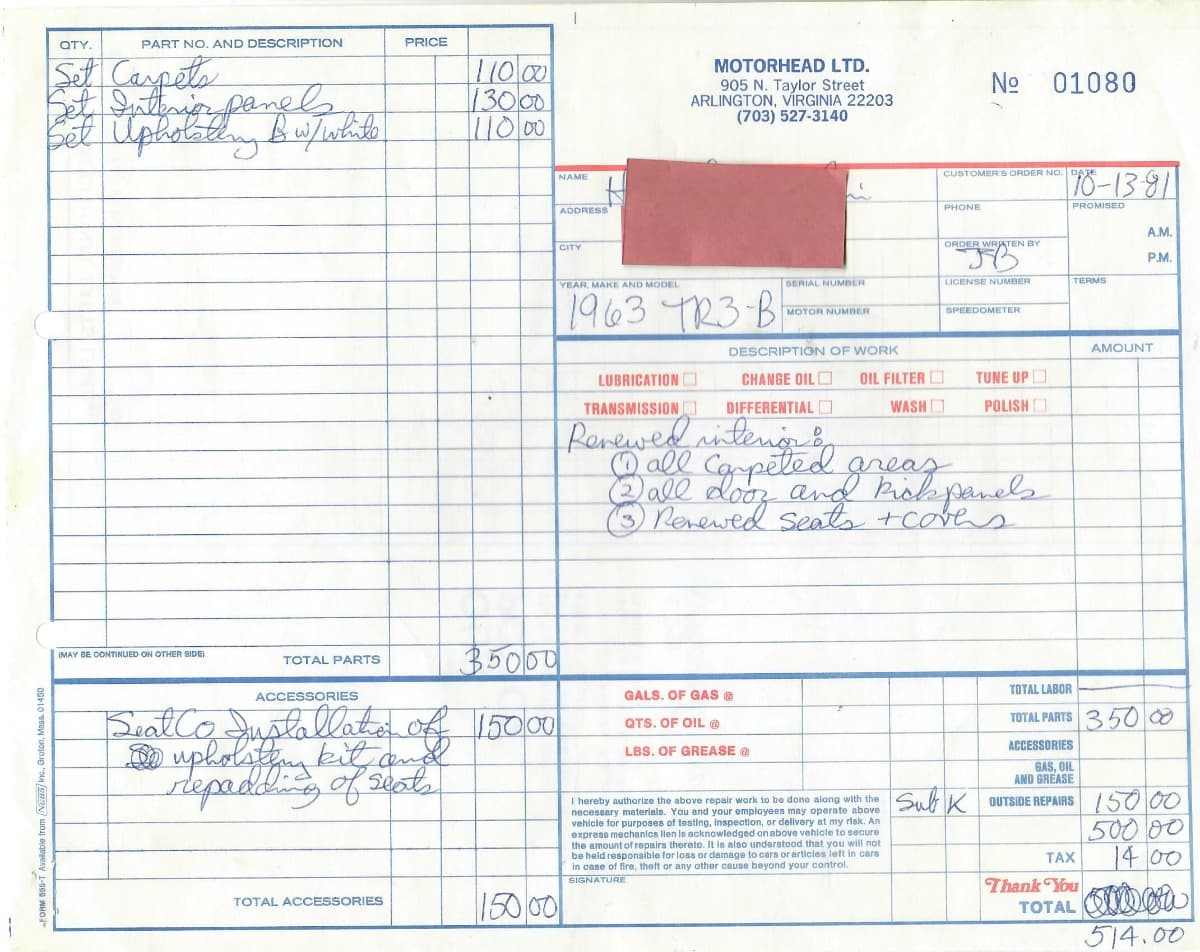 QTY. PART NO. AND DESCRIPTION PRICE
Set Carpets 110 00
Set Interior panels 130 00
Set Upholstery B w/white 110 00
(MAY BE CONTINUED ON OTHER SIDE) TOTAL PARTS 350 00
ACCESSORIES
SeatCo Installation of 150 00
upholstery kit and
repadding of seats
TOTAL ACCESSORIES 150 00
FORM 655-T Available from NEBS Inc., Groton, Mass. 01450
MOTORHEAD LTD.
905 N. Taylor Street
ARLINGTON, VIRGINIA 22203
(703) 527-3140
№ 01080
NAME
CUSTOMER'S ORDER NO.
DATE
10-13-81
ADDRESS
PHONE
PROMISED
A.M.
P.M.
CITY
ORDER WRITTEN BY
JB
YEAR, MAKE AND MODEL
1963 TR3-B
SERIAL NUMBER
LICENSE NUMBER
TERMS
MOTOR NUMBER
SPEEDOMETER
DESCRIPTION OF WORK AMOUNT
LUBRICATION CHANGE OIL OIL FILTER TUNE UP
TRANSMISSION DIFFERENTIAL WASH POLISH
Renewed interior:
① all Carpeted areas
② all door and kick panels
③ Renewed seats + covers
GALS. OF GAS @
QTS. OF OIL @
LBS. OF GREASE @
I hereby authorize the above repair work to be done along with the
necessary materials. You and your employees may operate above
vehicle for purposes of testing, inspection, or delivery at my risk. An
express mechanics lien is acknowledged on above vehicle to secure
the amount of repairs thereto. It is also understood that you will not
be held responsible for loss or damage to cars or articles left in cars
in case of fire, theft or any other cause beyond your control.
SIGNATURE
TOTAL LABOR
TOTAL PARTS 350 00
ACCESSORIES
GAS, OIL
AND GREASE
Sub K OUTSIDE REPAIRS 150 00
500 00
TAX 14 00
Thank You
TOTAL
514.00